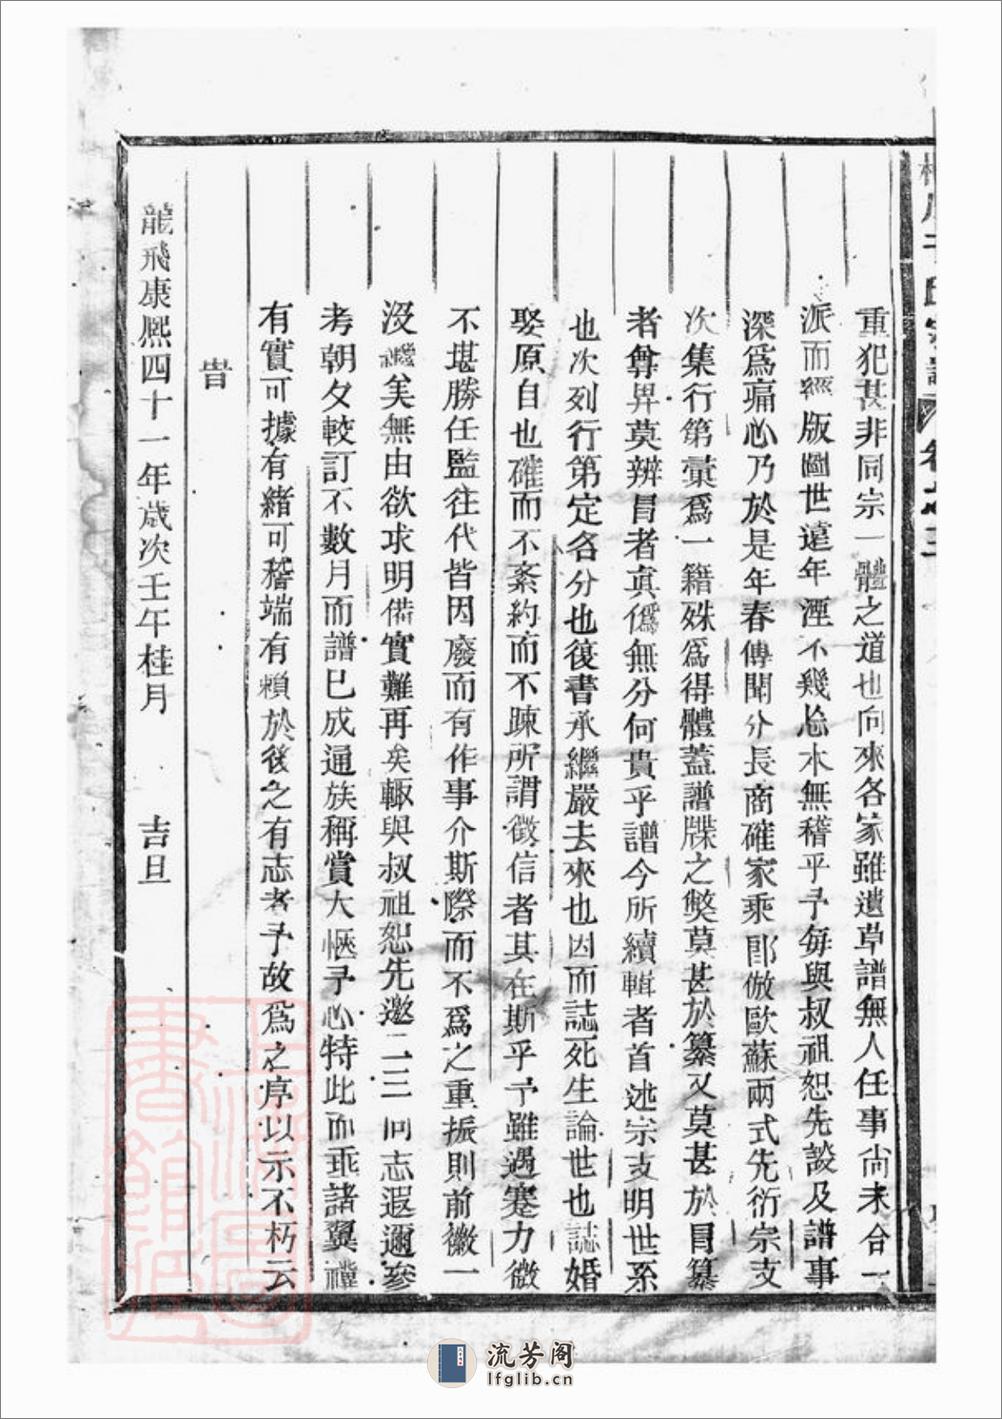 重犯甚非同宗一體之道也向來各家雖遺草譜無人任事尙未合一
派而經版圖世遠年湮不幾忘木無稽乎予每與叔祖恕先談及譜事
深爲痛心乃於是年春傳聞分長商確家乘郎倣歐蘇兩式先衍宗支
次集行第彙爲一籍殊爲得體蓋譜牒之獘莫甚於纂又莫甚於冒纂
者尊昇莫辨冒者眞僞無分何貴乎譜今所續輯者首述宗支明世系
也次列行第定各分也復書承繼嚴去來也因而誌死生論世也誌婚
娶原自也確而不紊約而不踈所謂徵信者其在斯乎予雖遇蹇力微
不堪勝任監往代皆因廢而有作事介斯際而不爲之重振則前徽一
沒繼矣無由欲求明備實難再矣輙與叔祖恕先邀二三同志遐邇參
考朝夕較訂不數月而譜已成通族稱賞大愜予心特此而乖諸翼禮
有實可據有緒可稽端有賴於後之有志者予故爲之序以示不朽云
旹
龍飛康熙四十一年歲次壬午桂月 吉旦
流芳阁
lfglib.cn